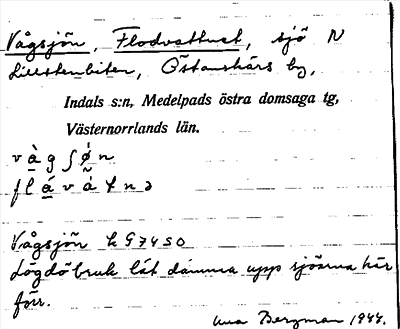 Vågsjön, Flodvattnet, sjö N
Lillstenbiten, Östanskärs by,
Indals s:n, Medelpads östra domsaga tg,
Västernorrlands län.
v à g ʃ ó n
Vågsjön h G74SO
Lögdö bruk låt dämma upp sjöarna här
förr.
Una Bergman 1944.